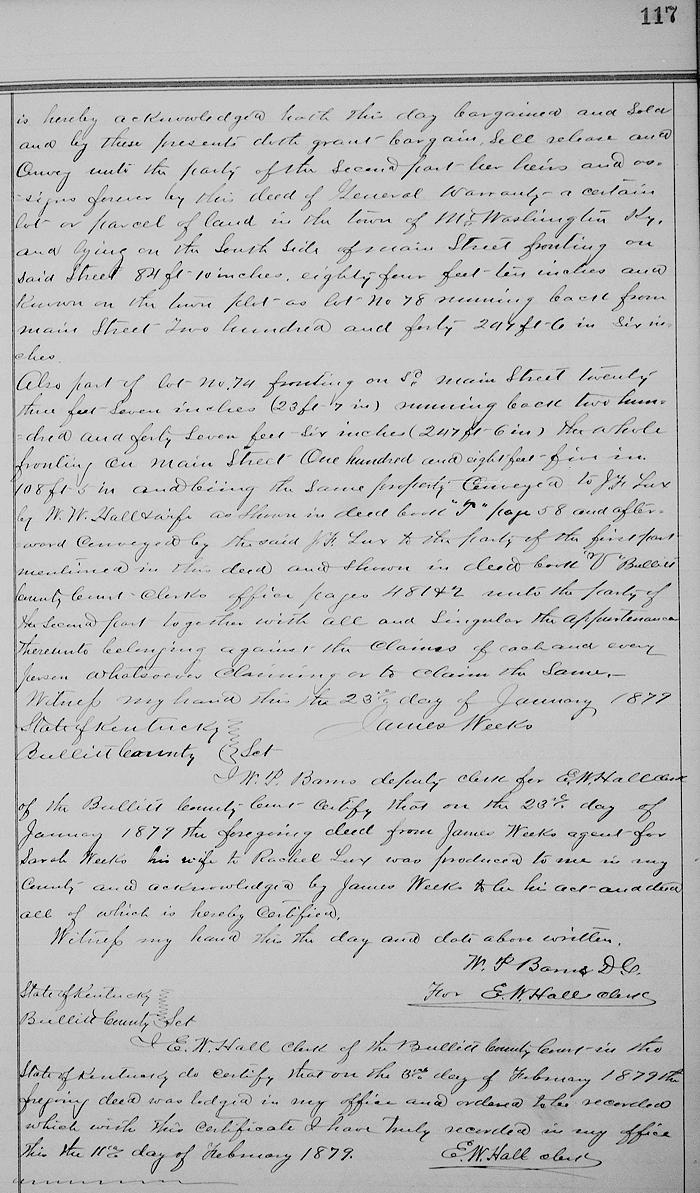 117
is hereby acknowledged hath this day bargained and Sold
and by these presents doth grant bargain, Sell release and
Convey unto the party of the Second part her heirs and as-
-signs forever by this deed of General Warranty a certain
lot or parcel of land in the town of Mt Washington Ky.
and lying on the South Side of main Street fronting on
Said Street 84 ft 10 inches. eighty four feet ten inches and
Known on the town plot as lot No 78 running back from
main Street Two hundred and forty 247 ft 6 in Six in-
ches.
Also part of lot No. 74 fronting on Sd main Street twenty
three feet Seven inches (23 ft 7 in) running back two hun-
-dred and forty Seven feet Six inches (247 ft 6 in) the whole
fronting on Main Street One hundred and eight feet five in
108 ft 5 in and being the Same property Conveyed to J. F. Lux
by W. W. Hall & wife as Shown in deed book "T" page 58 and after-
ward Conveyed by the said J. F. Lux to the party of the first part
mentioned in this deed and Shown in deed book "V" Bullitt
County Court Clerks office pages 481 & 2 unto the party of
the Second part together with all and Singular the appurtenance
thereunto belonging against the Claims of each and every
person whatsoever Claiming or to Claim the Same.
Witness my hand this the 23rd day of January 1879
State of Kentucky James Weeks
Bullitt County Sct
I W. P. Barns deputy clerk for E. W. Hall clerk
of the Bullitt County Court Certify that on the 23rd day of
January 1879 the foregoing deed from James Weeks agent for
Sarah Weeks his wife to Rachel Lux was produced to me in my
County and acknowledged by James Weeks to be his act and deed
all of which is hereby Certified.
Witness my hand this the day and date above written.
W. P. Barns D. C.
State of Kentucky For E. W. Hall clerk
Bullitt County Sct
I E. W. Hall Clerk of the Bullitt County Court in the
State of Kentucky do certify that on the day of February 1879 the
foregoing deed was lodged in my office and ordered to be recorded
which with this Certificate I have truly recorded in my office
this the 11th day of February 1879. E. W. Hall clerk